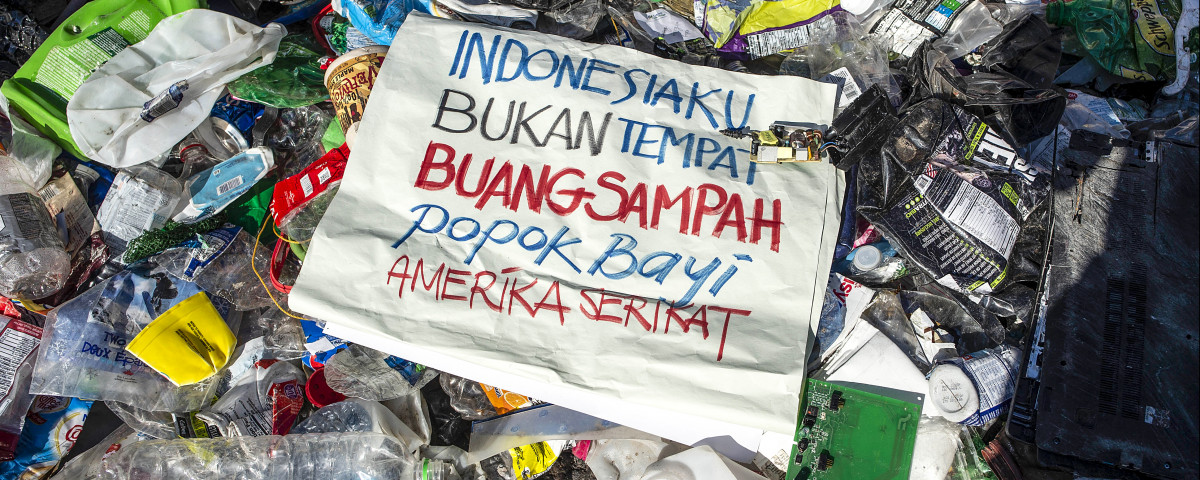 INDONESIAKU
BUKAN TEMPAT
BUANG SAMPAH
POPOK Bayi
AMERIKA SERIKAT
TWO
DOUX